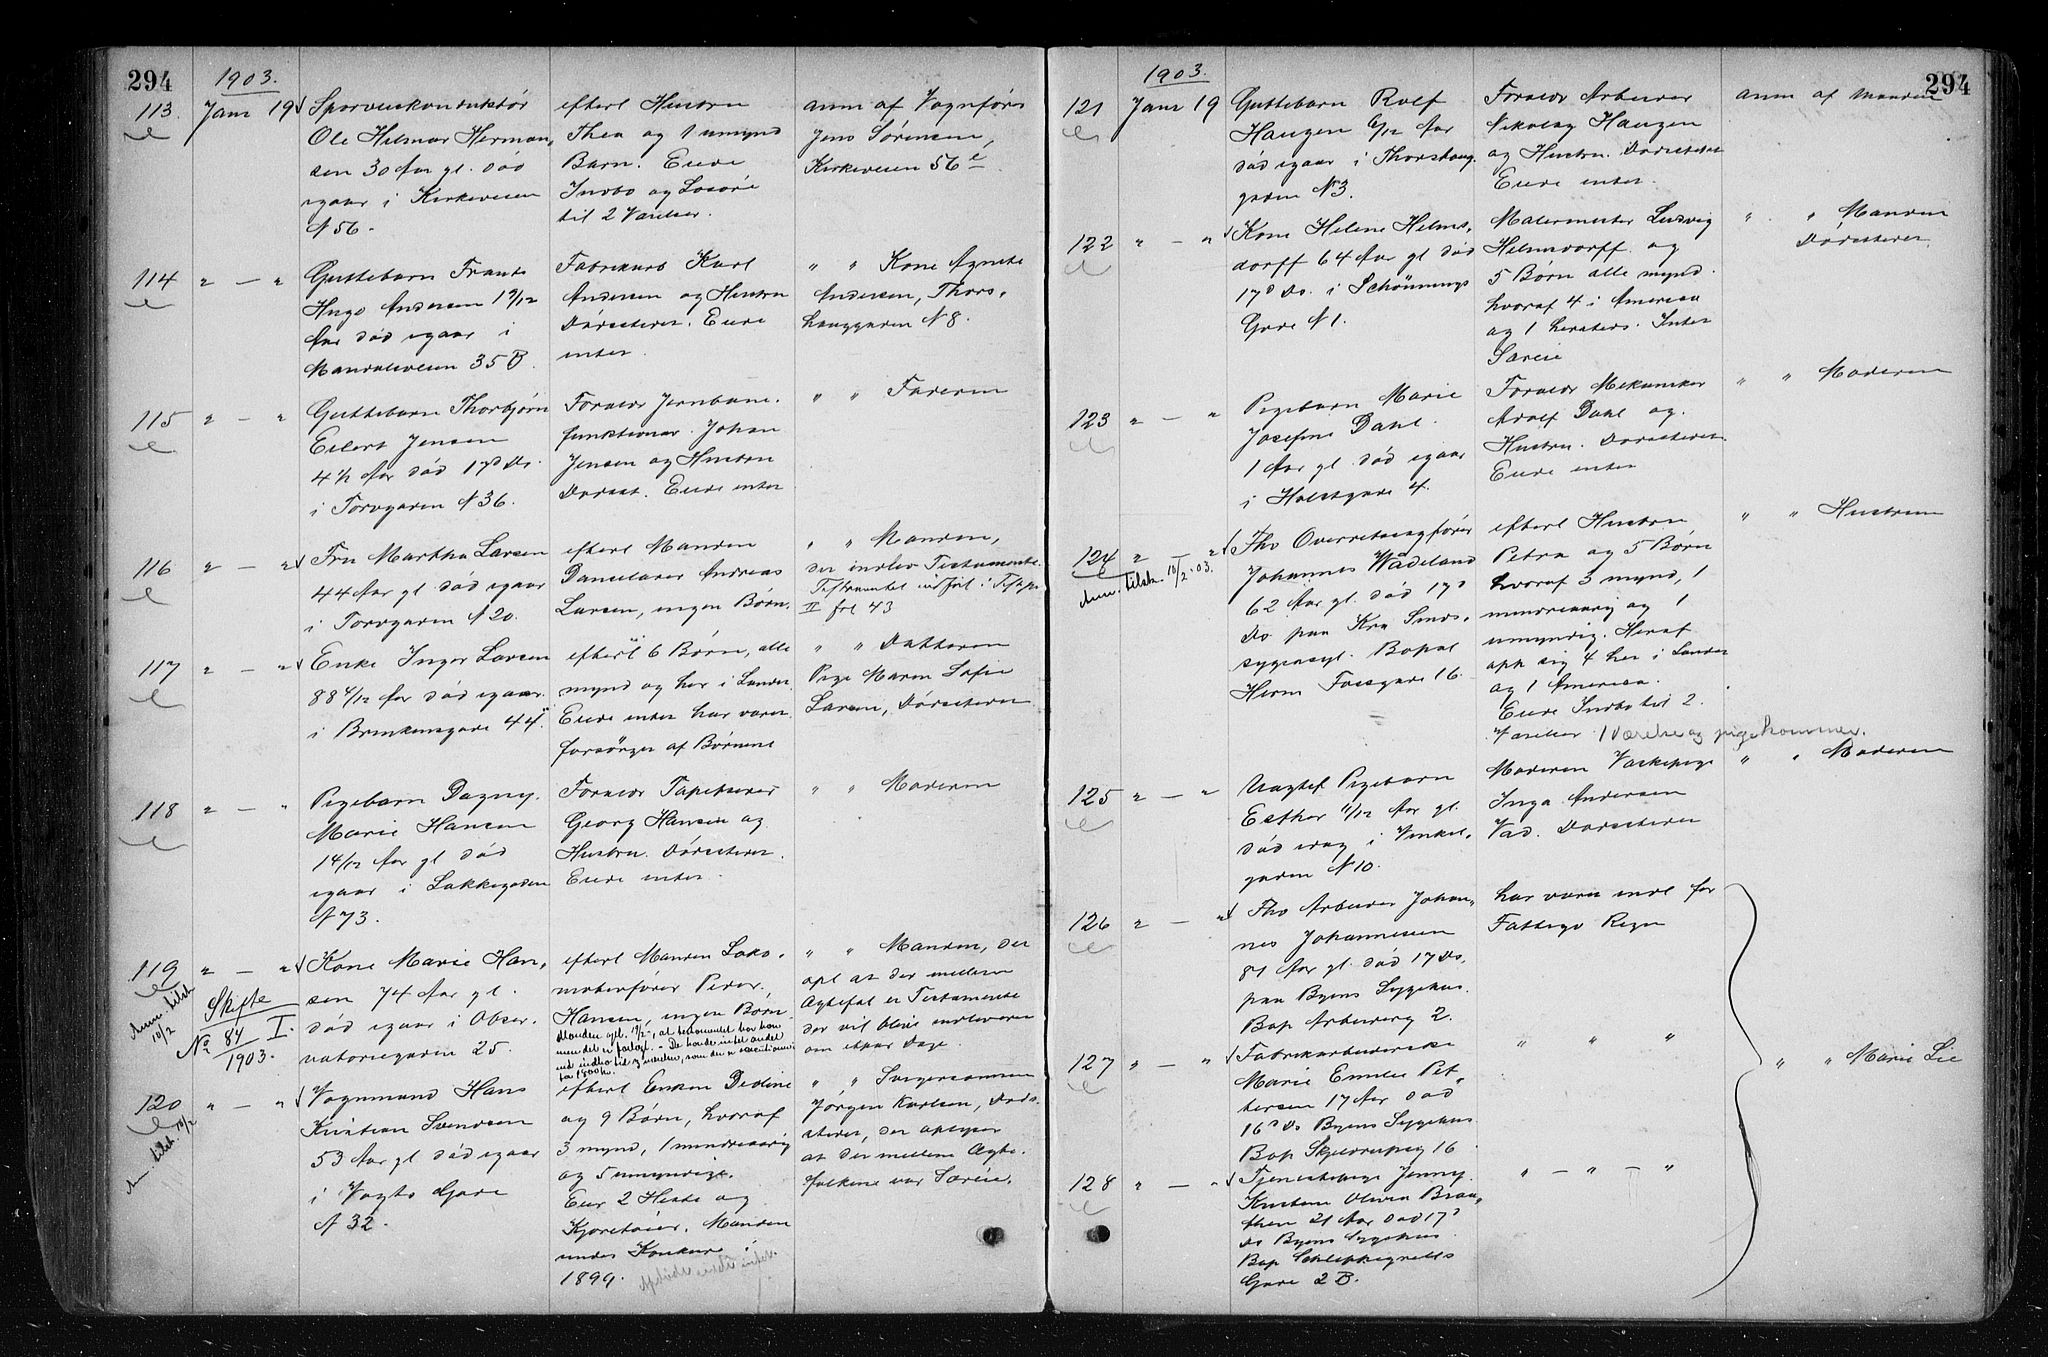 294
1903.
113
Janr 19
Sporveiskonduktør
Ole Hilmar Herman,
sen 30 Aar gl. død
igaar i Kirkeveien
N 56.
efterl Hustru
Thea og 1 umynd
Barn. Eiede
Indbo og Løsøre
til 2 Værelser.
anm af Vognfører
Jens Sørensen,
Kirkeveien 56
114
" — "
Guttebarn Frants
Hugo Andersen 1 9/12
Aar død igaar i
Maridalsveien 35 B.
Fabrikarb Karl
Andersen og Hustru
Dødsstedet. Eiede
intet.
" " Kone Agnethe
Andersen, Thors,
hauggaden N 8.
115
" — "
Guttebarn Thorbjørn
Eilert Jensen
4 1/2 Aar død 17de Ds.
i Torvgaden N 36.
Forældr Jernbane,
funktionær Johan
Jensen og Hustru
Dødsst. Eiede intet
" " Faderen
116
" — "
Fru Martha Larsen
44 Aar gl død igaar
i Torvgaden N 20.
efterl Manden
Danselærer Andreas
Larsen, ingen Børn.
" " Manden,
der indlev Testamente.
Testamentet indført i
II fol 43
117
" — "
Enke Inger Larsen
88 4/12 Aar død igaar
i Brinkensgade 44
efterl 6 Børn, alle
mynd og her i Landet.
Eiede intet har været
forsørget af Børnene
" " Datteren
Pige Maren Sofie
Larsen, Dødsstedet
118
" — "
Pigebarn Dagny
Marie Hansen
1 4/12 Aar gl død
igaar i Lakkegaden
N 73.
Forældr Tapetserer
Georg Hansen og
Hustru. Dødsstedet.
Eiede intet.
" " Moderen
119
" — "
Anm. tilst.
10/2
Skifte
No 84 I.
1903.
Kone Marie Han,
sen 74 Aar gl.
død igaar i Obser,
vatoriegaden 25.
efterl Manden Loko,
motivfører Peder
Hansen, ingen Børn
Manden opl. 10/2, at testamentet bor kom
men det er
for 1800 kr.
" " Manden, der
opl at der mellem
Ægtefol er Testamente
der vil blive indleveret
om etpar Dage.
120
" — "
Anm. tilst. 10/2
Vognmand Hans
Kristian Svendsen
53 Aar gl død igaar
i Vogts Gade
N 32.
efterl Enken Dedine
og 9 Børn, hvoraf
3 mynd, 1 mindreaarig
og 5 umyndige.
Eier 2 Heste og
Kjøretøier. Manden
under Konkurs i
1899.
" " Svigersønnen
Jørgen Karlsen, Døds,
stedet, der oplyser
at der mellem Ægte,
folkene var Særeie.
294
1903.
121
Janr 19
Guttebarn Rolf
Haugen 6/12 Aar
død igaar i Thorshaug,
gaden N 3.
Forældr Arbeider
Nikolay Haugen
og Hustru. Dødsstedet
Eiede intet.
anm af Manden
122
" — "
Kone Helene Helms,
dorff 64 Aar gl død
17de Ds. i Schønnings
Gade N 1.
Malermester Ludvig
Helmsdorff og
5 Børn alle mynd.
hvoraf 4 i America
og 1 hersteds. Intet
Særeie
" " Manden
Dødsstedet
123
" — "
Pigebarn Marie
Josefine Dahl.
1 Aar gl. død igaar
i Holstgade 4.
Forældr Mekaniker
Adolf Dahl og
Hustru. Dødsstedet.
Eiede intet
" " Moderen
124
Anm. tilst. 10/2.03.
Fhv Overretssagfører
Johannes Wadeland
62 Aar gl. død 17de
Ds paa Kra Sinds,
sygeasyl. Bopæl
Herm Fossgade 16.
efterl Hustru
Petra og 5 Børn
hvoraf 3 mynd, 1
mindreaarig og 1
umyndig. Heraf
oph sig 4 her i Landet
og 1 America.
Eiede Indbo til 2
Værelser 1 Værelse og pigekammer.
" " Hustruen
125
" — "
Uægtef Pigebarn
Esther 11/12 Aar gl.
død idag i Vinkel,
gaden N 10.
Moderen Vaskepige
Inga Andersen
Vad. Dødsstedet
" " Moderen
126
" — "
Fhv Arbeider Johan,
nes Johannesen
81 Aar gl. død 17 Ds.
paa Byens Sygehus.
Bop Arbeiderg 2.
har været indl for
Fattigv Regn
127
" "
Fabrikarbeiderske
Marie Emilie Pet,
tersen 17 Aar død
16de Ds Byens Sygehus
Bop Skjeldrupsg 16
" " "
" " Marie Lie
128
" — "
Tjenestepige Jenny
Kristine Olivia Braa,
then 21 Aar død 17de
Ds Byens Sygehus.
Bop Schleppegrells
Gade 2 B.
" — " — "